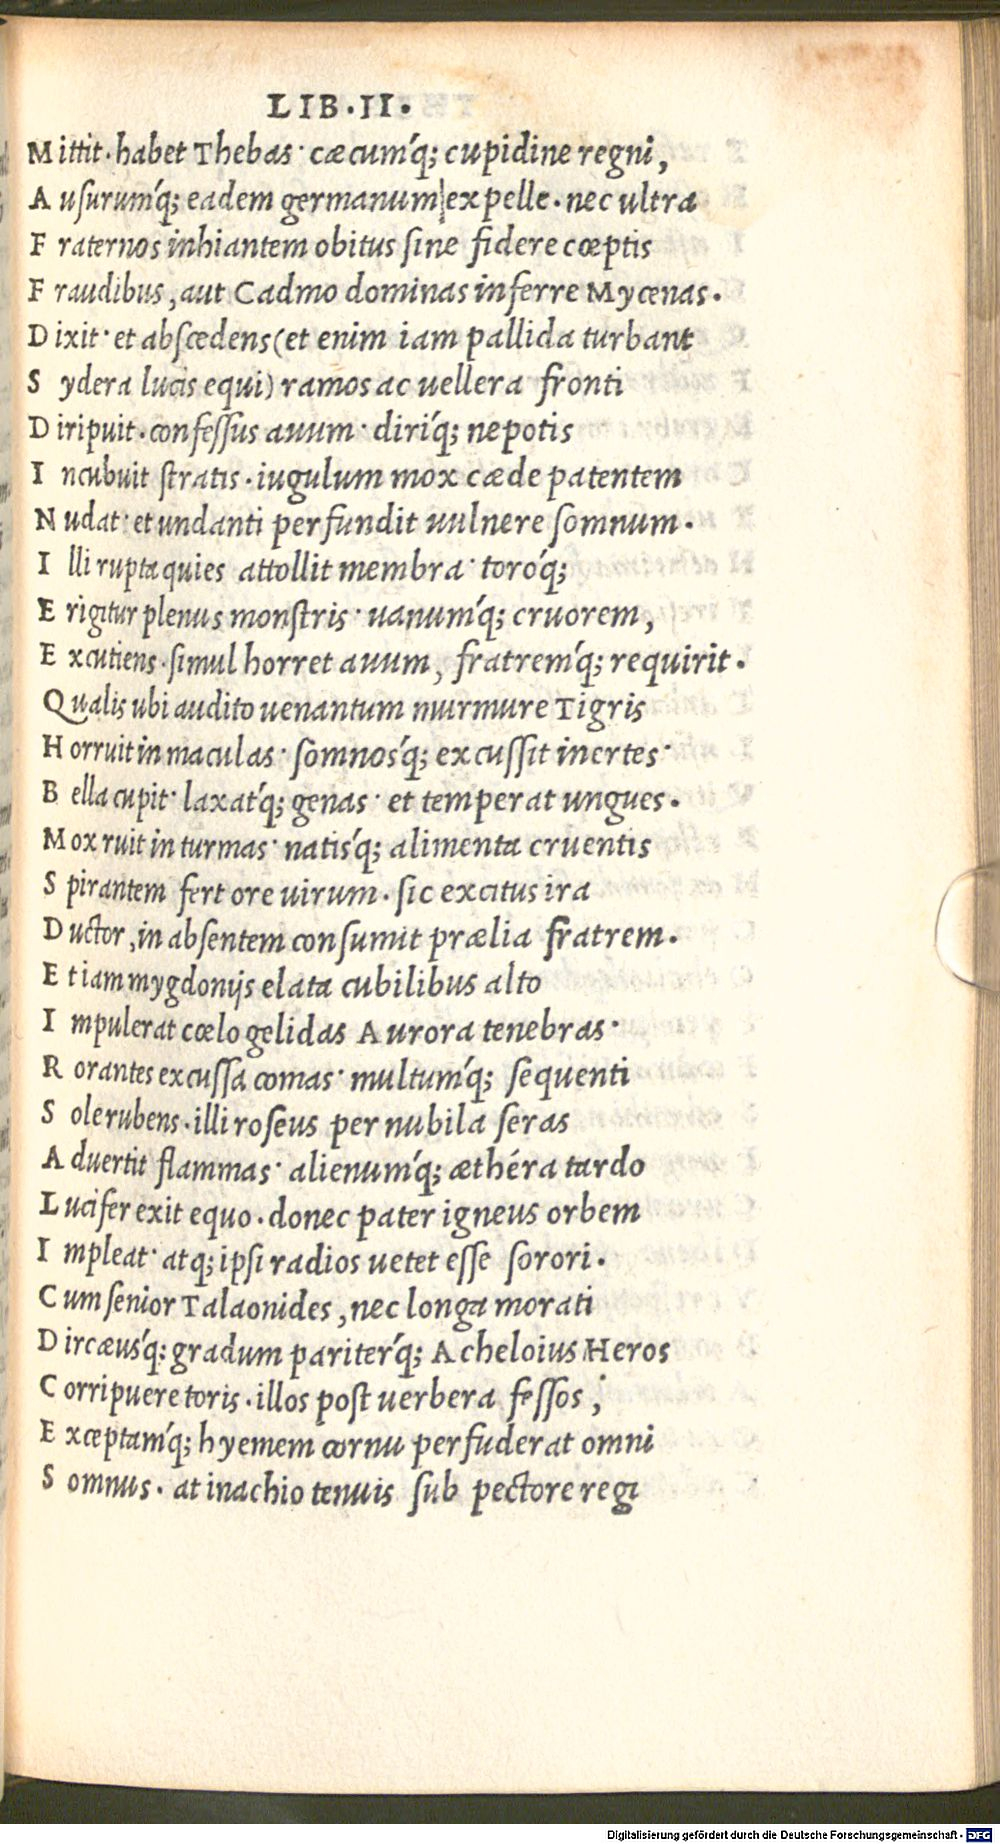 LIB·II·
Mittit·habet Thebas· cæcumq́; cupidine regni,
Ausurumq́; eadem germanum expelle·nec ultra
Fraternos inhiantem obitus sine fidere cœptis
Fraudibus, aut Cadmo dominas inferre Mycenas·
Dixit· et abscedens(et enim iam pallida turbant
Sydera lucis equi) ramos ac uellera fronti
Diripuit·confessus auum· diriq́; nepotis
Incubuit stratis·iugulum mox cæde patentem
Nudat· et undanti perfundit uulnere somnum·
Illi rupta quies attollit membra· toroq́;
Erigitur plenus monstris· uanumq́; cruorem,
Excutiens·simul horret auum, fratremq́; requirit·
Qualis ubi audito uenantum murmure Tigris
Horruit in maculas· somnosq́; excussit inertes·
Bella cupit· laxatq́; genas· et temperat ungues·
Mox ruit in turmas· natisq́; alimenta cruentis
Spirantem fert ore uirum·sic excitus ira
Ductor, in absentem consumit prælia fratrem·
Et iam mygdonijs elata cubilibus alto
Impulerat cœlo gelidas Aurora tenebras·
Rorantes excussa comas· multumq́; sequenti
Sole rubens·illi roseus per nubila seras
Aduertit flammas· alienumq́; æthéra tardo
Lucifer exit equo·donec pater igneus orbem
Impleat· atq; ipsi radios uetet esse sorori·
Cum senior Talaonides, nec longa morati
Dircæusq́; gradum pariterq́; Acheloius Heros
Corripuere toris·illos post uerbera fessos,
Exceptamq́; hyemem cornu perfuderat omni
Somnus· at inachio tenuis sub pectore regi
Digitalisierung gefördert durch die Deutsche Forschungsgemeinschaft - DFG